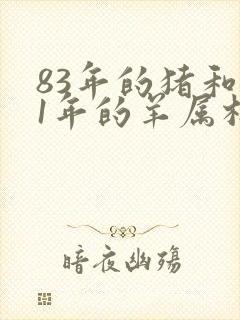 83年的猪和
1年的羊属相
暗夜幽殇